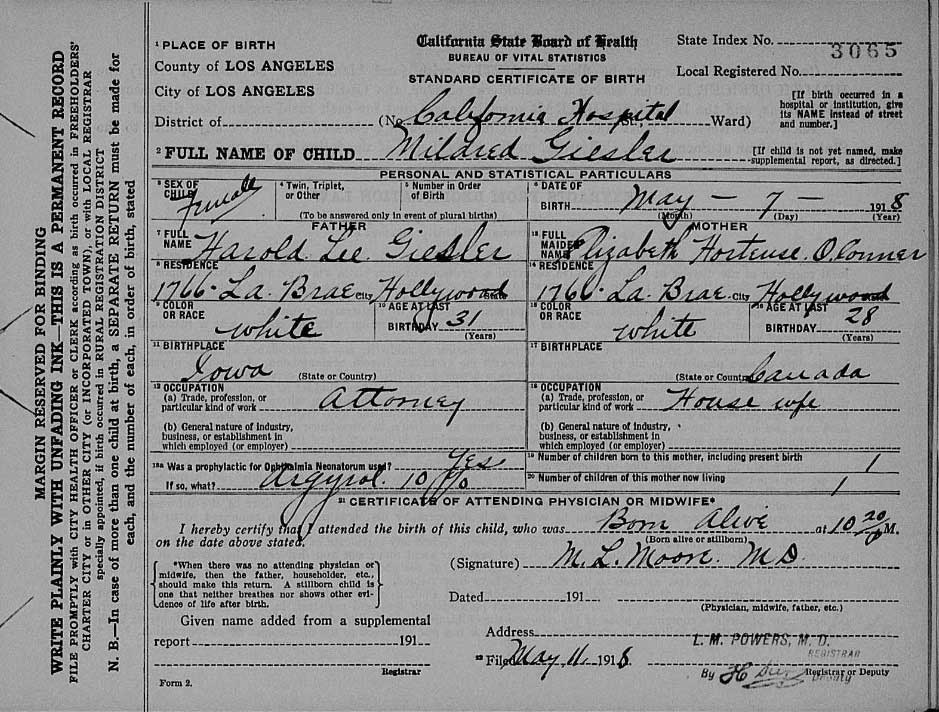 MARGIN RESERVED FOR BINDING
WRITE PLAINLY WITH UNFADING INK—THIS IS A PERMANENT RECORD
FILE PROMPTLY with CITY HEALTH OFFICER or CLERK according as birth occurred in FREEHOLDERS'
CHARTER CITY or in OTHER CITY (or INCORPORATED TOWN), or with LOCAL REGISTRAR
specially appointed, if birth occurred in RURAL REGISTRATION DISTRICT
N. B.—In case of more than one child at birth, a SEPARATE RETURN must be made for
each, and the number of each, in order of birth, stated
1 PLACE OF BIRTH
County of LOS ANGELES
City of LOS ANGELES
California State Board of Health
BUREAU OF VITAL STATISTICS
STANDARD CERTIFICATE OF BIRTH
State Index No. 3065
Local Registered No.
District of (No. California Hospital St., Ward)
[If birth occurred in a
hospital or institution, give
its NAME instead of street
and number.]
2 FULL NAME OF CHILD Mildred Giesler
[If child is not yet named, make
supplemental report, as directed.]
PERSONAL AND STATISTICAL PARTICULARS
3 SEX OF
CHILD Female
4 Twin, Triplet,
or Other
5 Number in Order
of Birth
(To be answered only in event of plural births)
6 DATE OF
BIRTH May - 7 - 1918
(Month) (Day) (Year)
FATHER
7 FULL
NAME Harold Lee Giesler
8 RESIDENCE
1766 La Brae City Hollywood State
9 COLOR
OR RACE white
10 AGE AT LAST
BIRTHDAY 31
(Years)
11 BIRTHPLACE
Iowa
(State or Country)
12 OCCUPATION
(a) Trade, profession, or
particular kind of work Attorney
(b) General nature of industry,
business, or establishment in
which employed (or employer)
MOTHER
13 FULL
MAIDEN
NAME Elizabeth Hortense O'Conner
14 RESIDENCE
1766 La Brae City Hollywood
15 COLOR
OR RACE white
16 AGE AT LAST
BIRTHDAY 28
(Years)
17 BIRTHPLACE
(State or Country) Canada
18 OCCUPATION
(a) Trade, profession, or
particular kind of work House wife
(b) General nature of industry,
business, or establishment in
which employed (or employer)
18a Was a prophylactic for Ophthalmia Neonatorum used? Yes
If so, what? Argyrol 10%
19 Number of children born to this mother, including present birth 1
20 Number of children of this mother now living 1
21 CERTIFICATE OF ATTENDING PHYSICIAN OR MIDWIFE*
I hereby certify that I attended the birth of this child, who was Born Alive at 10 20 P M.
on the date above stated. (Born alive or stillborn)
*When there was no attending physician or
midwife, then the father, householder, etc.,
should make this return. A stillborn child is
one that neither breathes nor shows other evi-
dence of life after birth.
(Signature) M. L. Moore. M D.
Dated 191
(Physician, midwife, father, etc.)
Given name added from a supplemental
report 191
Registrar
Address
22 Filed May 11, 1918
L. M. POWERS, M. D.
REGISTRAR
By
Registrar or Deputy
Deputy
Form 2.